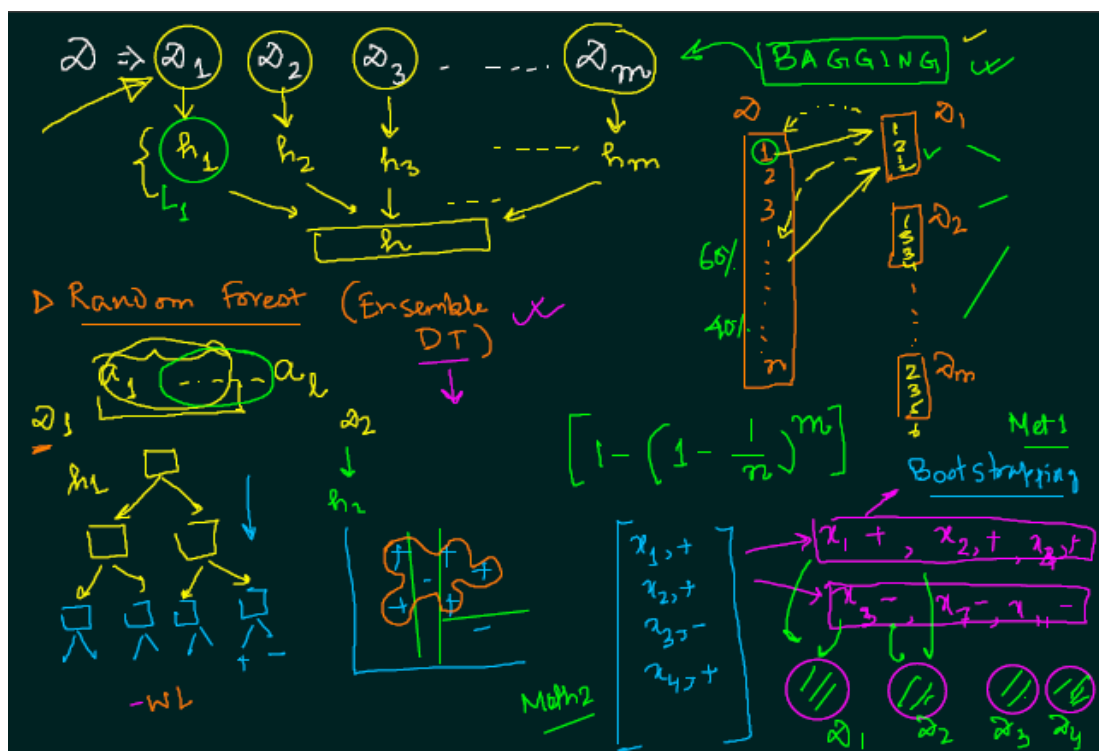 D ⇒ D1 D2 D3 - - - - - Dm
BAGGING
h1 h2 h3 - - - - hm
L1
h
D
1
2
3
n
60%
40%
D1
1
2
D2
1
5
3
4
Dm
2
3
5
Random Forest (Ensemble
DT)
a1 - - - - al
D1
h1
D2
h2
[1 - (1 - 1/n)^m]
Met 1
Bootstrapping
+ + +
- 
+ +
-
+ -
-WL
Meth2
x1, +
x2, +
x3, -
x4, +
x1 +, x2, +, x4, +
x3 -, x7 -, x11 -
D1 D2 D3 D4